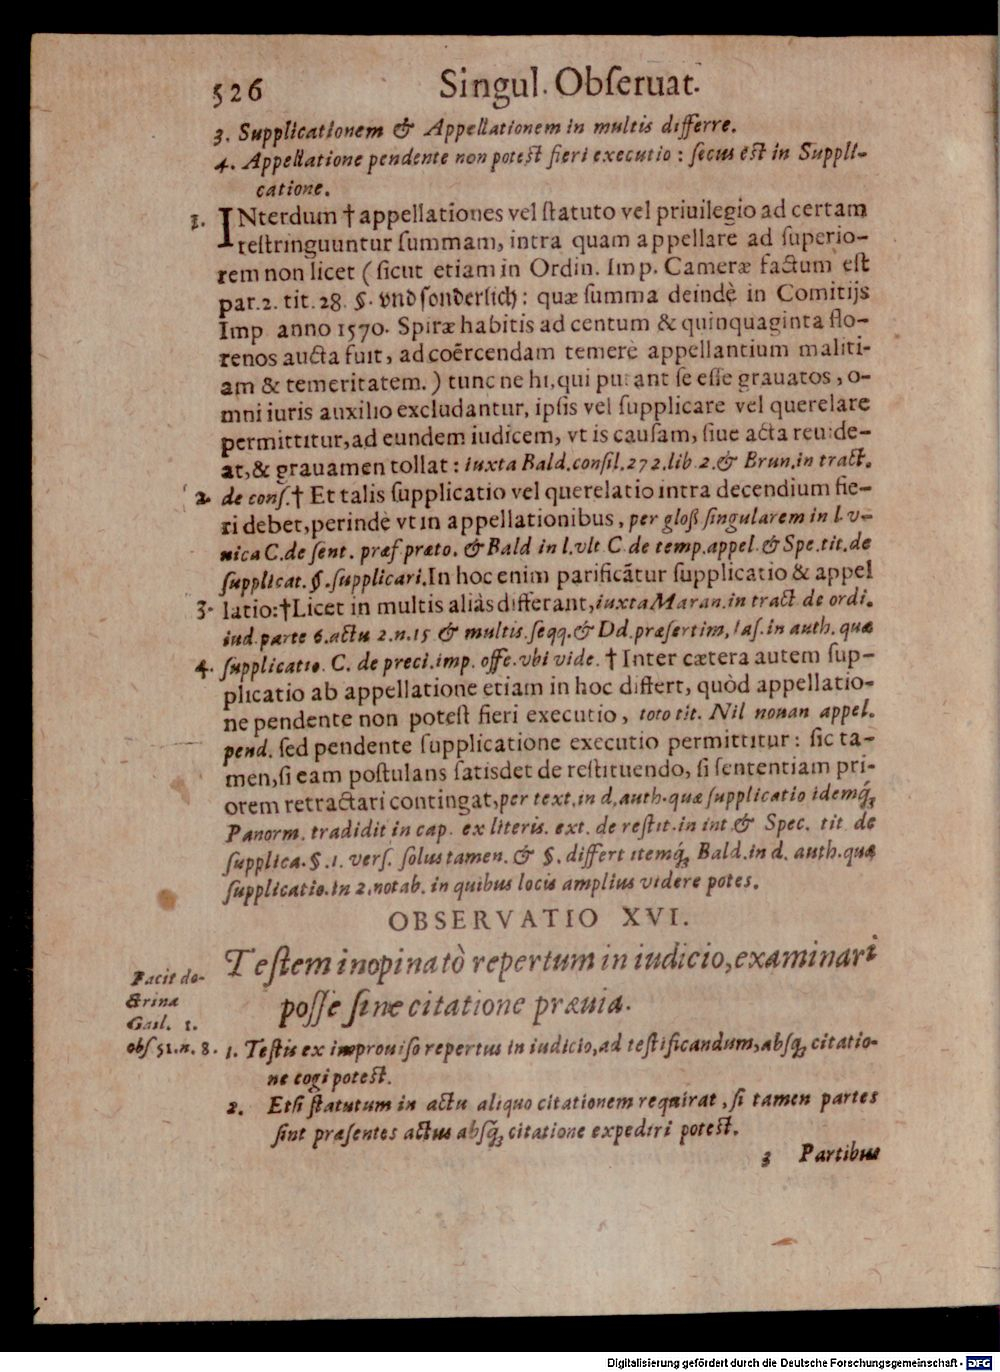 526 Singul. Obſeruat.
3. Supplicationem & Appellationem in multis differre.
4. Appellatione pendente non poteſt fieri executio : ſecus eſt in Suppli-
catione.
1. INterdum † appellationes vel ſtatuto vel priuilegio ad certam
reſtringuuntur ſummam, intra quam appellare ad ſuperio-
rem non licet ( ſicut etiam in Ordin. Imp. Cameræ factum eſt
par. 2. tit. 28. §. vnd ſonderlich : quæ ſumma deindè in Comitijs
Imp anno 1570. Spiræ habitis ad centum & quinquaginta flo-
renos aucta fuit, ad coẽrcendam temerè appellantium maliti-
am & temeritatem. ) tunc ne hi, qui putant ſe eſſe grauatos, o-
mni iuris auxilio excludantur, ipſis vel ſupplicare vel querelare
permittitur, ad eundem iudicem, vt is cauſam, ſiue acta reuide-
at, & grauamen tollat : iuxta Bald. conſil. 272. lib 2. & Brun. in tract.
2. de conſ. † Et talis ſupplicatio vel querelatio intra decendium fie-
ri debet, perindè vt in appellationibus, per gloß ſingularem in l. v-
nica C. de ſent. præf præto. & Bald in l. vlt C. de temp. appel. & Spe. tit. de
ſupplicat. §. ſupplicari. In hoc enim parificãtur ſupplicatio & appel
3. latio: † Licet in multis aliàs differant, iuxta Maran. in tract de ordi.
iud. parte 6. actu 2. n. 15 & multis. ſeqq. & Dd. præſertim, Iaſ. in auth. quæ
4. ſupplicatio. C. de preci. imp. offe. vbi vide. † Inter cætera autem ſup-
plicatio ab appellatione etiam in hoc differt, quòd appellatio-
ne pendente non poteſt fieri executio, toto tit. Nil nouan appel.
pend. ſed pendente ſupplicatione executio permittitur : ſic ta-
men, ſi eam poſtulans ſatisdet de reſtituendo, ſi ſententiam pri-
orem retractari contingat, per text. in d. auth. quæ ſupplicatio idemq́;
Panorm. tradidit in cap. ex literis. ext. de reſtit. in int & Spec. tit de
ſupplica. §. 1. verſ. ſolus tamen. & §. differt itemq́; Bald. in d. auth. quæ
ſupplicatio. in 2. notab. in quibus locis amplius videre potes.
OBSERVATIO XVI.
Teſtem inopinatò repertum in iudicio, examinari
poſſe ſine citatione præuia.
Facit do-
ctrina
Gail. 1.
obſ 51. n. 8.
1. Teſtis ex improuiſo repertus in iudicio, ad teſtificandum, abſq; citatio-
ne cogi poteſt.
2. Etſi ſtatutum in actu aliquo citationem requirat, ſi tamen partes
ſint præſentes actus abſq́; citatione expediri poteſt.
3 Partibus
Digitalisierung gefördert durch die Deutsche Forschungsgemeinschaft - DFG